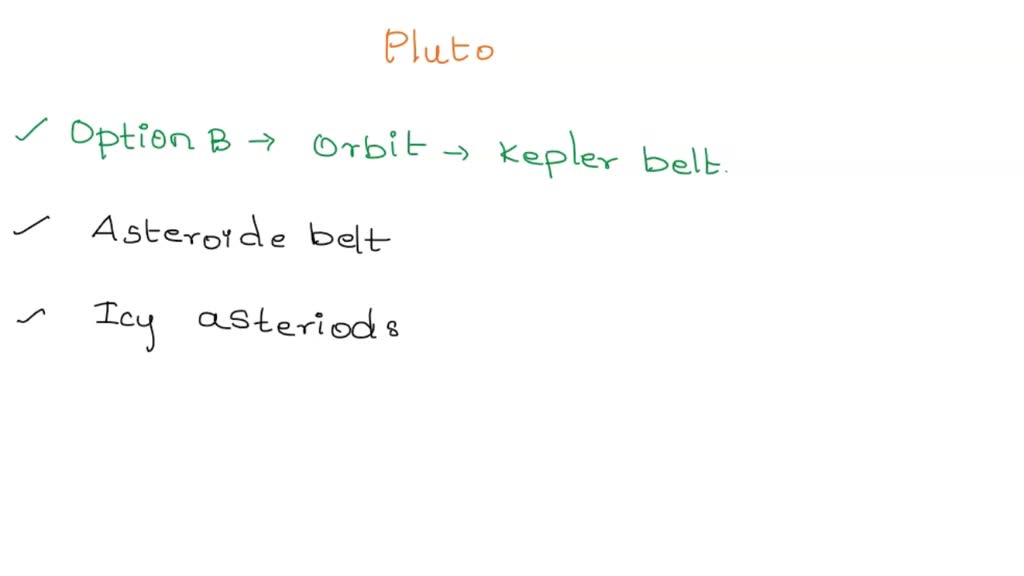 Pluto
✓ Option B → Orbit → Kepler belt.
✓ Asteroide belt
✓ Icy asteriods